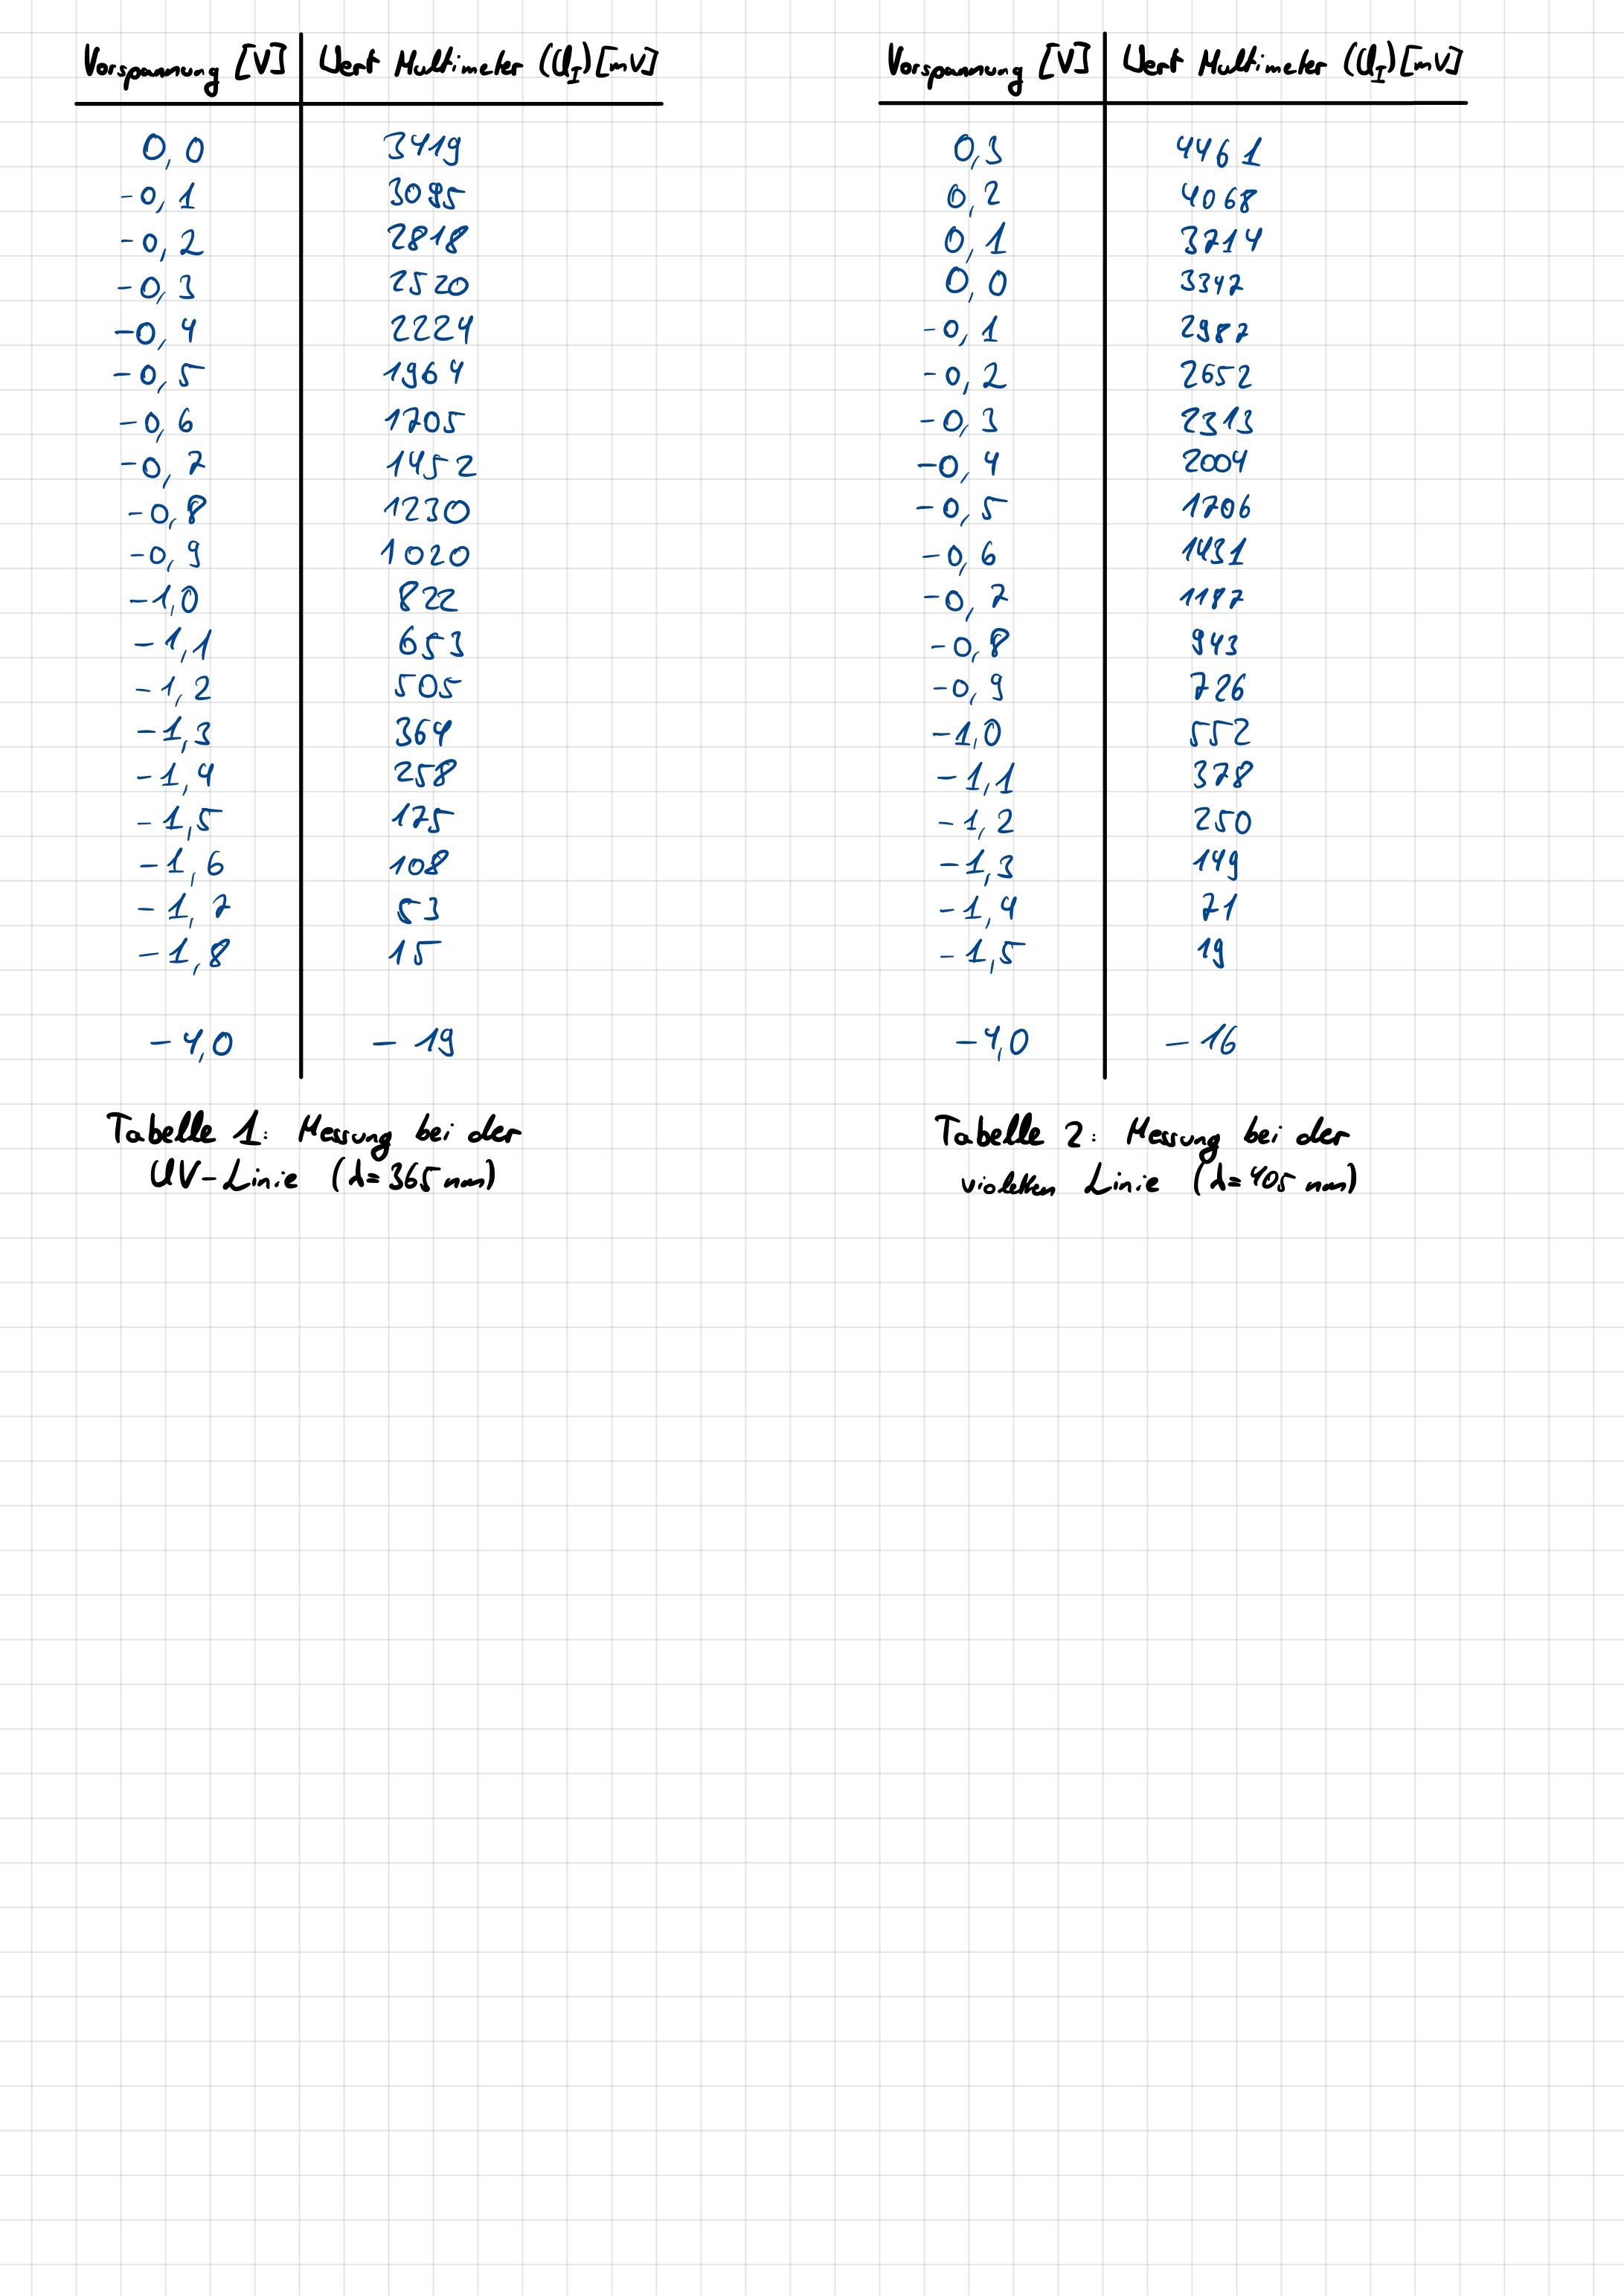 Vorspannung [V] Wert Multimeter (U_I) [mV]
0,0 3419
-0,1 3095
-0,2 2818
-0,3 2520
-0,4 2224
-0,5 1964
-0,6 1705
-0,7 1452
-0,8 1230
-0,9 1020
-1,0 822
-1,1 653
-1,2 505
-1,3 364
-1,4 258
-1,5 175
-1,6 108
-1,7 53
-1,8 15
-4,0 -19
Tabelle 1: Messung bei der
UV-Linie (λ=365 nm)
Vorspannung [V] Wert Multimeter (U_I) [mV]
0,3 4461
0,2 4068
0,1 3714
0,0 3347
-0,1 2987
-0,2 2652
-0,3 2313
-0,4 2004
-0,5 1706
-0,6 1431
-0,7 1187
-0,8 943
-0,9 726
-1,0 552
-1,1 378
-1,2 250
-1,3 149
-1,4 71
-1,5 19
-4,0 -16
Tabelle 2: Messung bei der
violetten Linie (λ=405 nm)